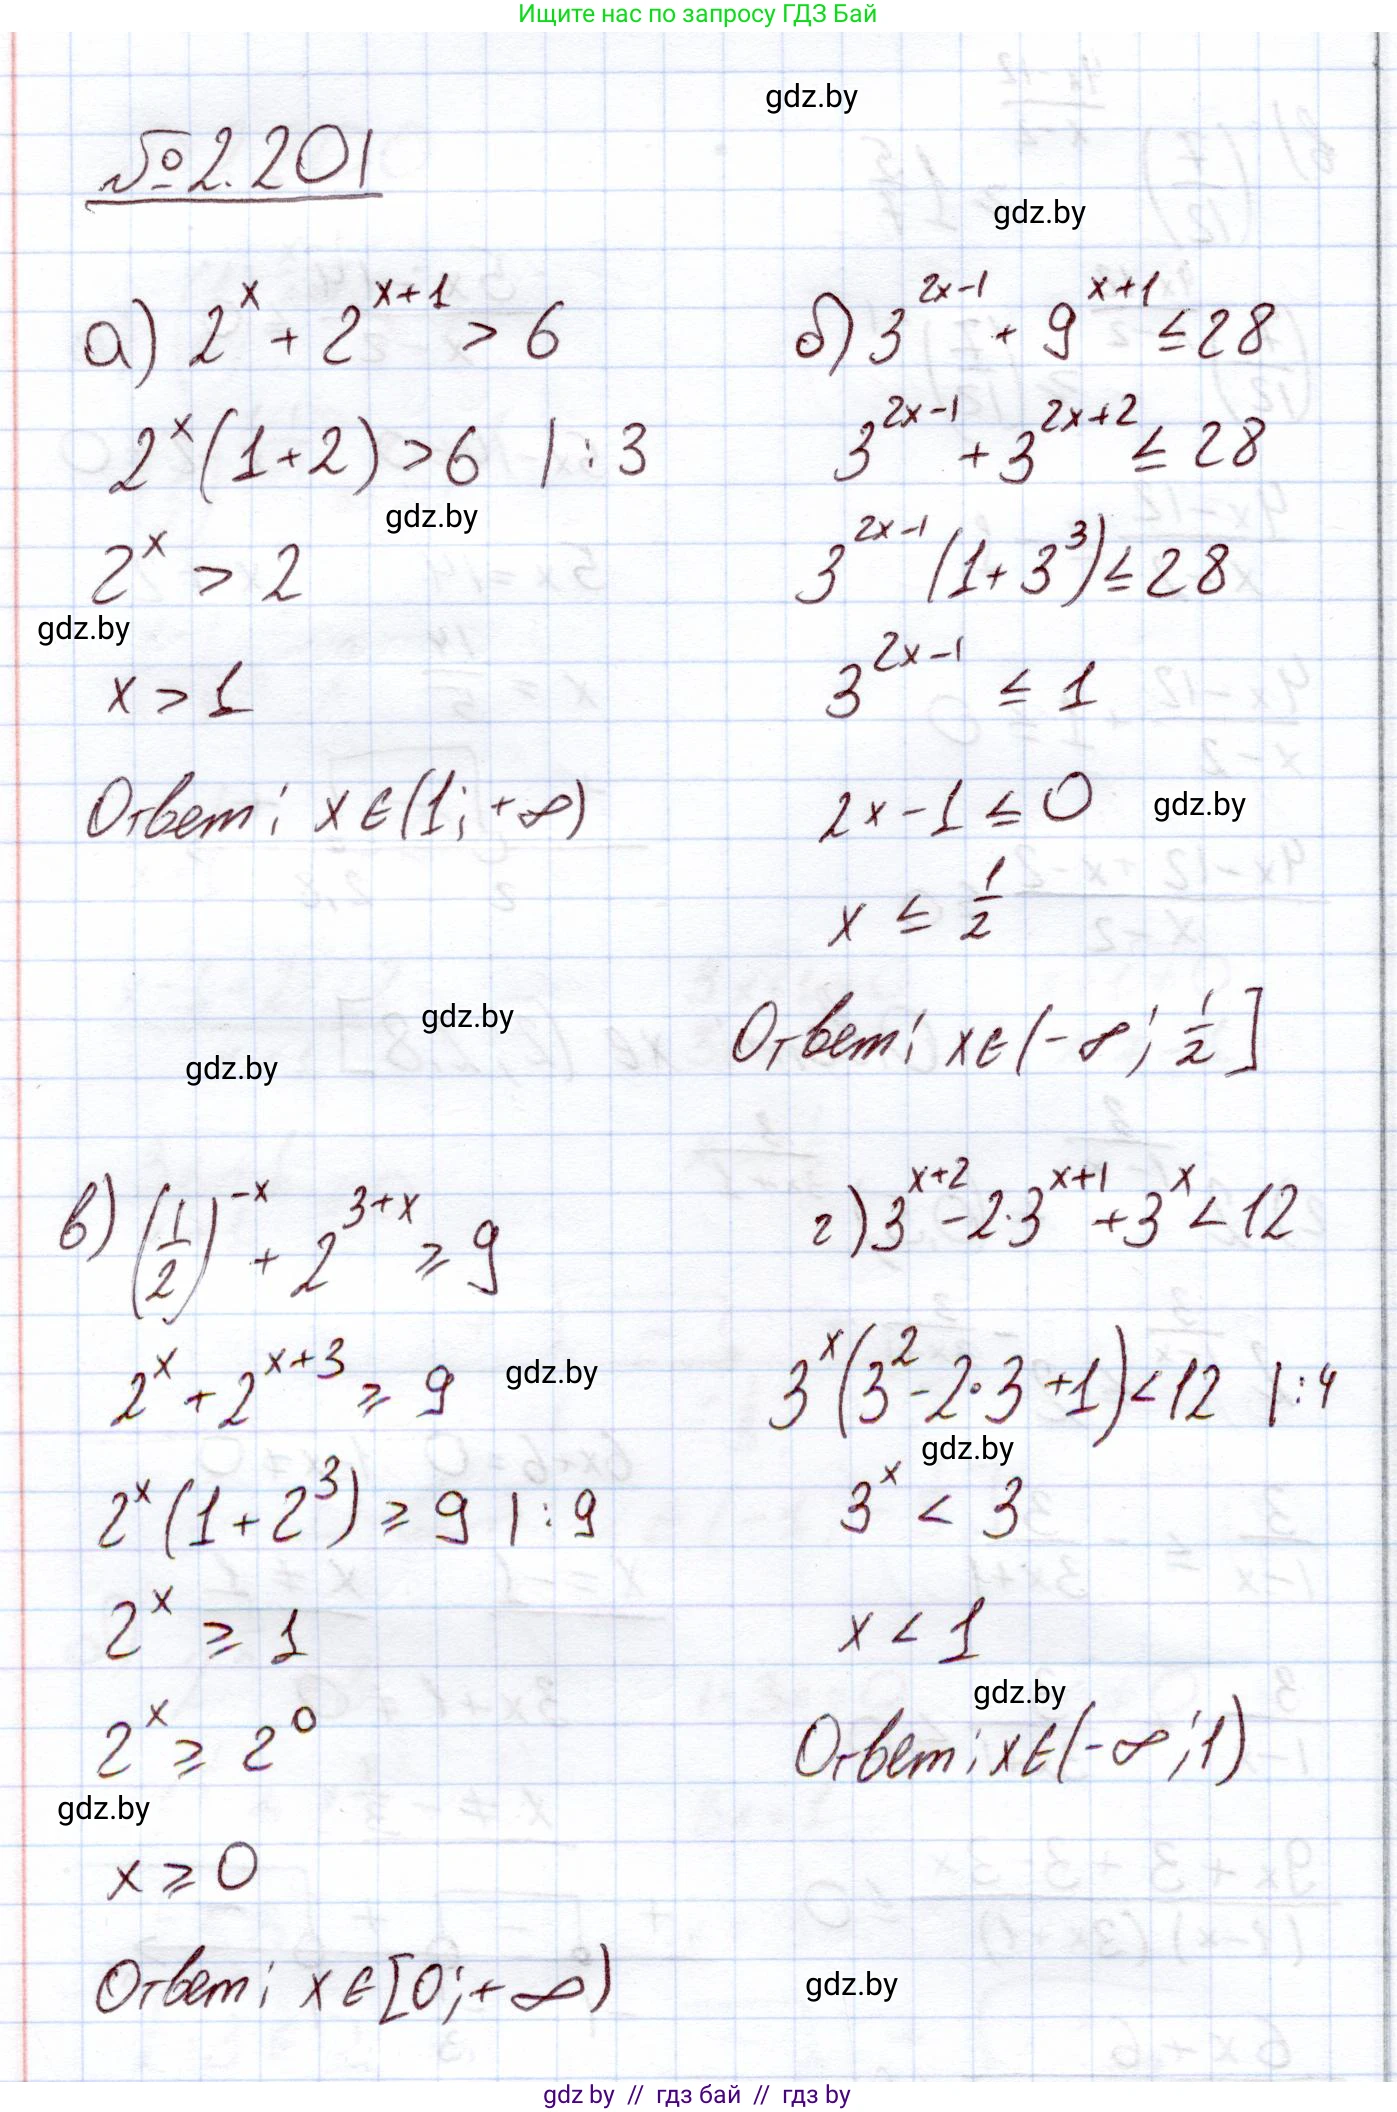 Ищите нас по запросу ГДЗ Бай
gdz.by
№2.201
gdz.by
а) 2^x + 2^{x+1} > 6
2^x (1+2) > 6 | : 3
gdz.by
2^x > 2
gdz.by
x > 1
Ответ: x ∈ (1; +∞)
б) 3^{2x-1} + 9^{x+1} ≤ 28
3^{2x-1} + 3^{2x+2} ≤ 28
3^{2x-1} (1+3^3) ≤ 28
3^{2x-1} ≤ 1
2x-1 ≤ 0
gdz.by
x ≤ 1/2
Ответ: x ∈ (-∞; 1/2]
gdz.by
gdz.by
в) (1/2)^{-x} + 2^{3+x} ≥ 9
2^x + 2^{x+3} ≥ 9
gdz.by
2^x (1+2^3) ≥ 9 | : 9
2^x ≥ 1
2^x ≥ 2^0
gdz.by
x ≥ 0
Ответ: x ∈ [0; +∞)
г) 3^{x+2} - 2·3^{x+1} + 3^x < 12
3^x (3^2 - 2·3 + 1) < 12 | : 4
gdz.by
3^x < 3
x < 1
gdz.by
Ответ: x ∈ (-∞; 1)
gdz.by
gdz by // гдз бай // гдз by